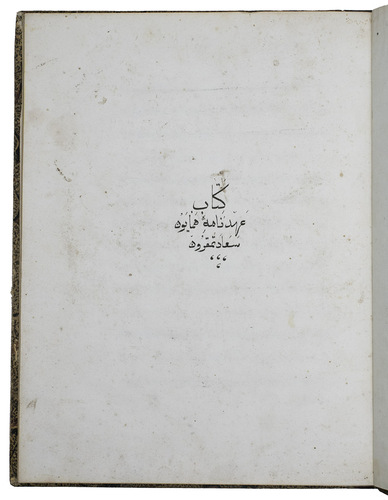 كتاب
عهدنامۀ همايون
سعادتمقرون